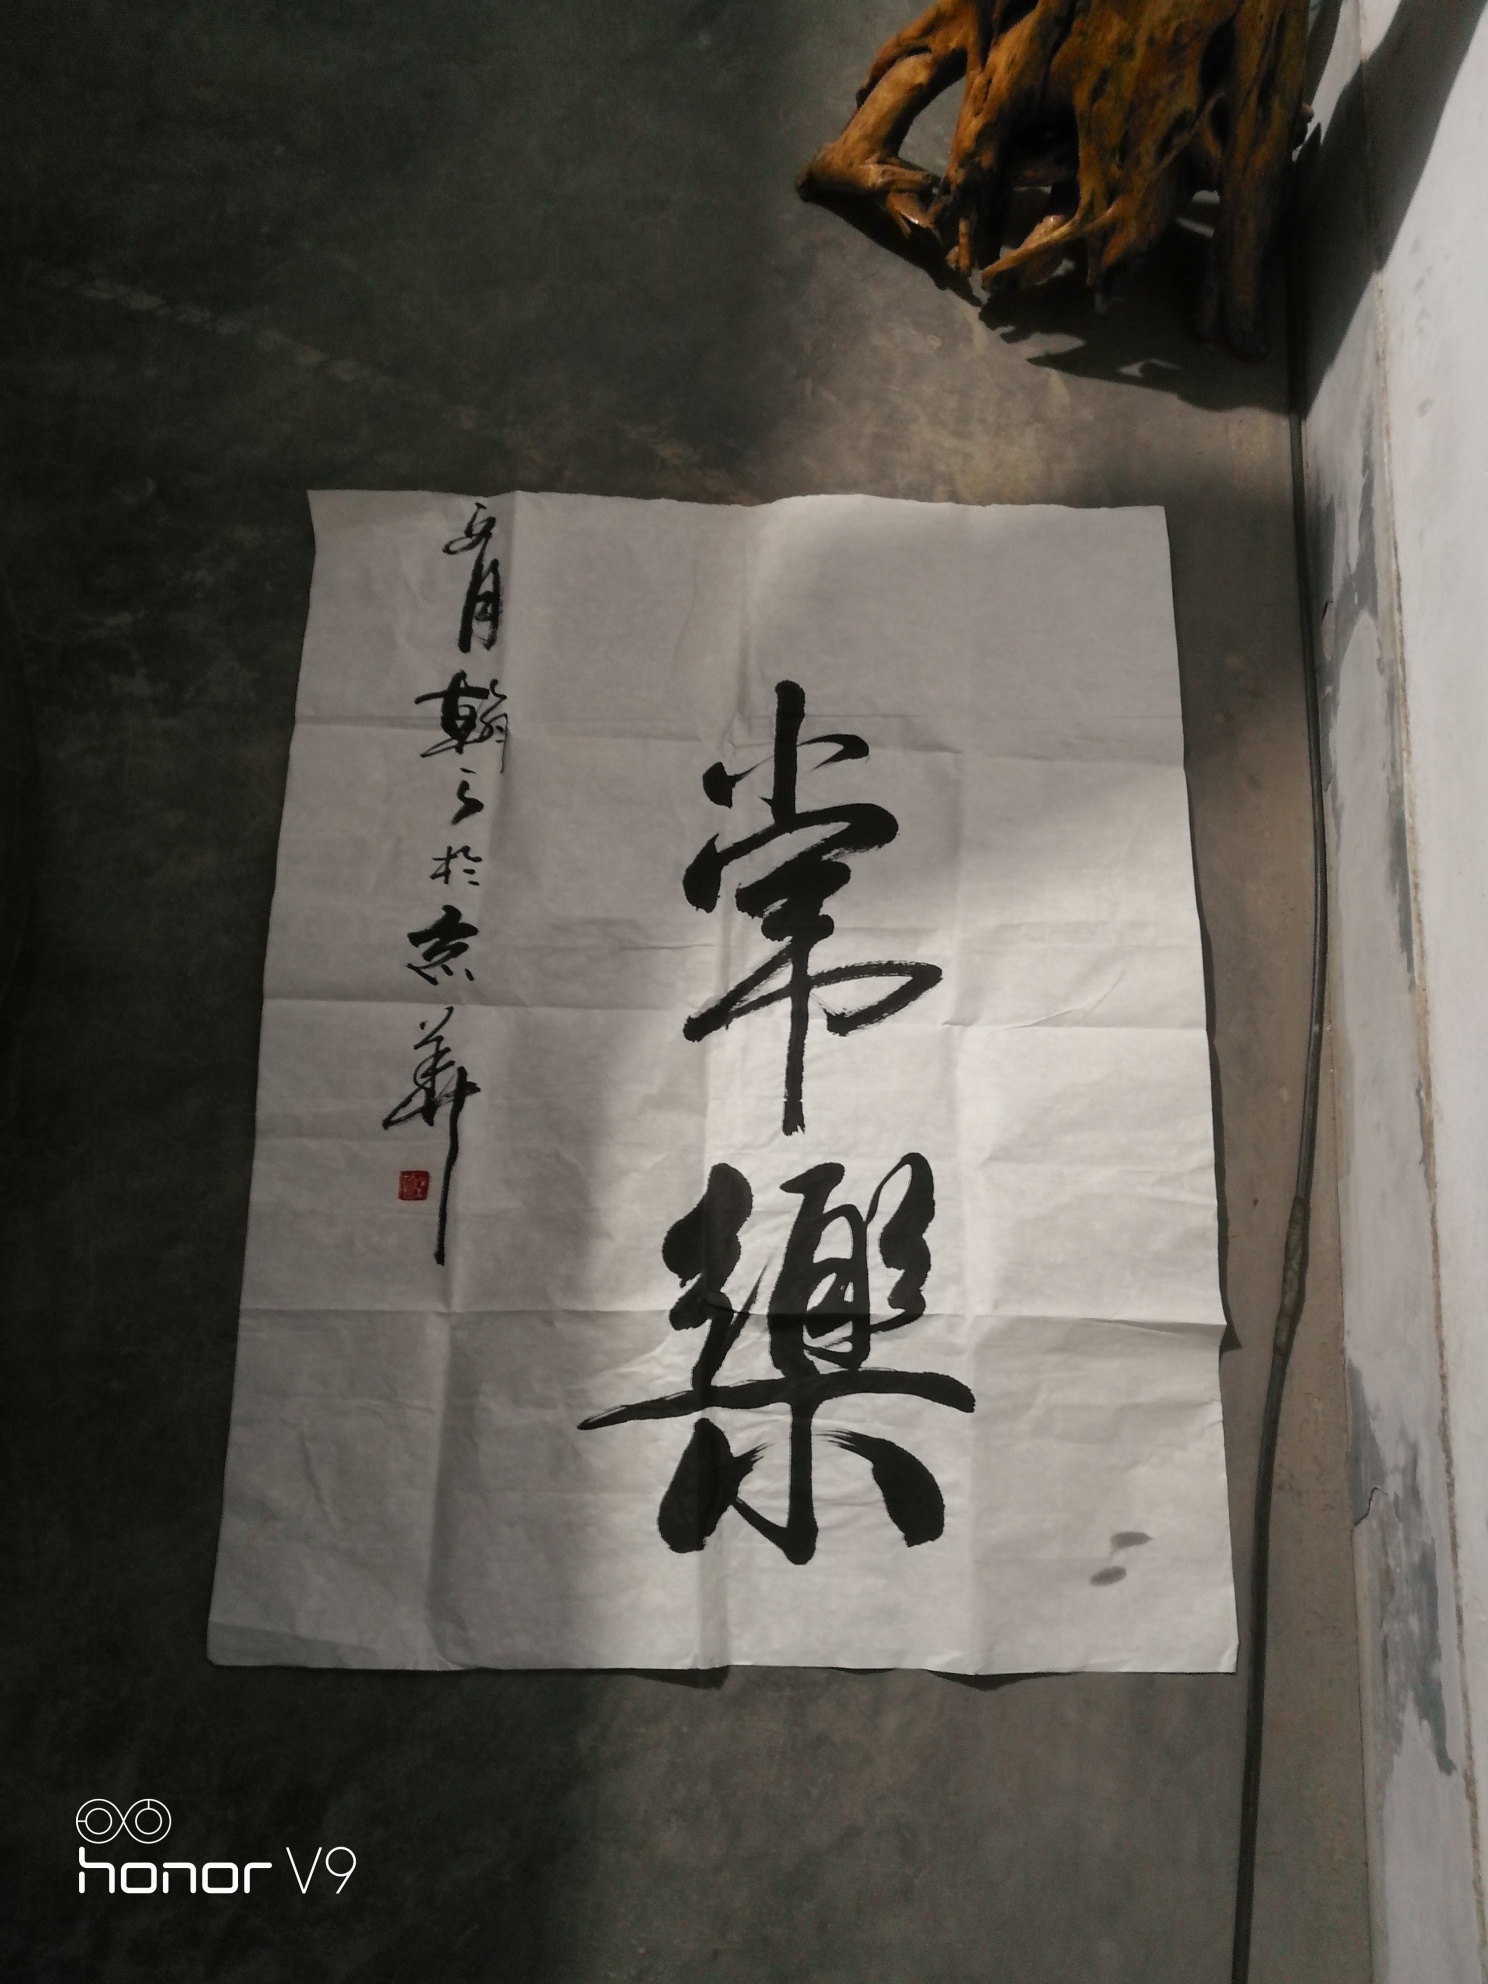 常樂
月翰之於京華
honor V9